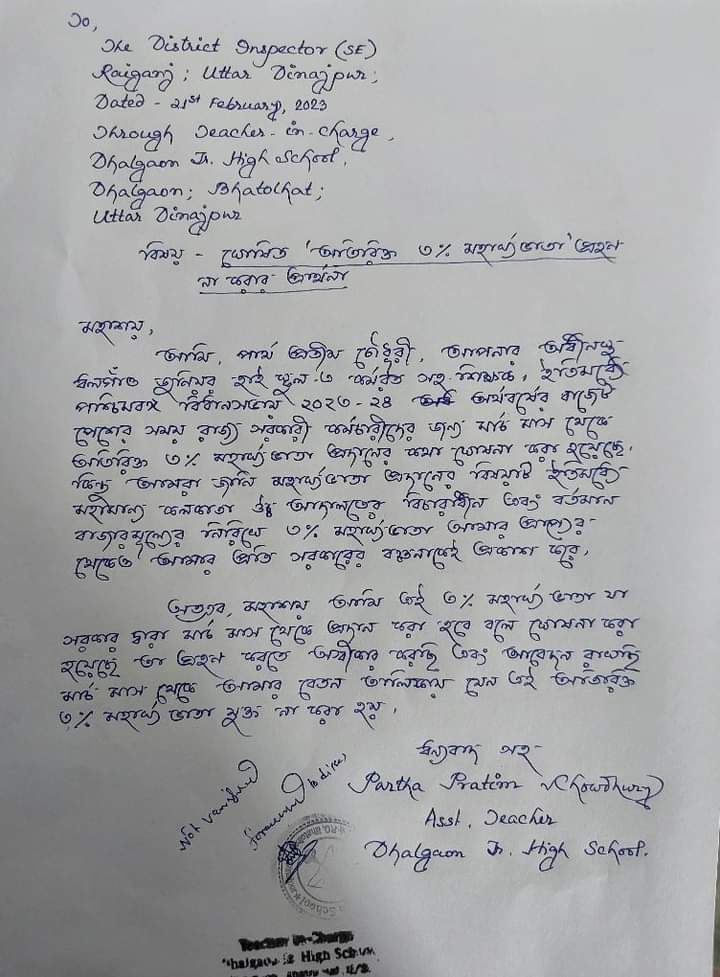 To,
The District Inspector (SE)
Raiganj; Uttar Dinajpur;
Dated - 21st February, 2023
Through Teacher-in-charge,
Dhalgaon Jr. High School,
Dhalgaon; Bhatolhat;
Uttar Dinajpur
বিষয় - ঘোষিত 'অতিরিক্ত ৩% মহার্ঘ্য ভাতা' গ্রহণ
না করার প্রার্থনা
মহাশয়,
আমি, পার্থ প্রতীম চৌধুরী, আপনার অধীনস্থ
ধলগাঁও জুনিয়র হাই স্কুল-এ কর্মরত সহ-শিক্ষক, ইতিমধ্যে
পশ্চিমবঙ্গ বিধানসভায় ২০২৩-২৪ অর্থবর্ষের বাজেট
পেশের সময় রাজ্য সরকারী কর্মচারীদের জন্য মার্চ মাস থেকে
অতিরিক্ত ৩% মহার্ঘ্য ভাতা প্রদানের কথা ঘোষনা করা হয়েছে.
কিন্তু আমরা জানি মহার্ঘ্য ভাতা প্রদানের বিষয়টি ইতিমধ্যে
মহামান্য কলকাতা উচ্চ আদালতের বিচারাধীন এবং বর্তমান
বাজারমূল্যের নিরিখে ৩% মহার্ঘ্য ভাতা আমার প্রাপ্যের
থেকেও আমার প্রতি সরকারের বঞ্চনাকেই প্রকাশ করে.
অতএব, মহাশয় আমি এই ৩% মহার্ঘ্য ভাতা যা
সরকার দ্বারা মার্চ মাস থেকে প্রদান করা হবে বলে ঘোষনা করা
হয়েছে তা গ্রহণ করতে অস্বীকার করছি এবং আবেদন রাখছি
মার্চ মাস থেকে আমার বেতন তালিকায় যেন এই অতিরিক্ত
৩% মহার্ঘ্য ভাতা যুক্ত না করা হয়.
ধন্যবাদ সহ-
Partha Pratim Chowdhury
Asst. Teacher
Dhalgaon Jr. High School.
Not verified
Teacher-In-Charge
Dhalgaon Jr High School